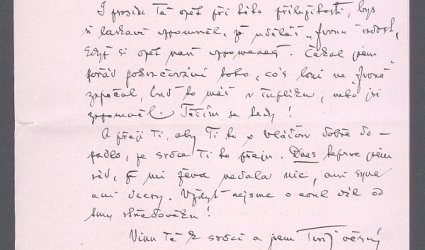 I prosím Tě opět při této příležitosti, bys
si laskavě vzpomněl, že uděláš „Živnu" radost,
když si opět naň vzpomeneš. Čekal jsem
pořád pokračování toho, co's loni ve „Živně"
započal, buď to máš v šuplíku, nebo jsi
zapomněl. Těším se tedy!
A přeji Ti, aby Ti to v dobře do-
padlo, ze srdce Ti to přeju. Dnes teprve jsem
rád, že mi žena nedala nic, ani syna
ani dcery. Vždyť nejsme o nic dál od
tmy středověku!
Vítá Tě ze srdce a jsem Tvůj věrný